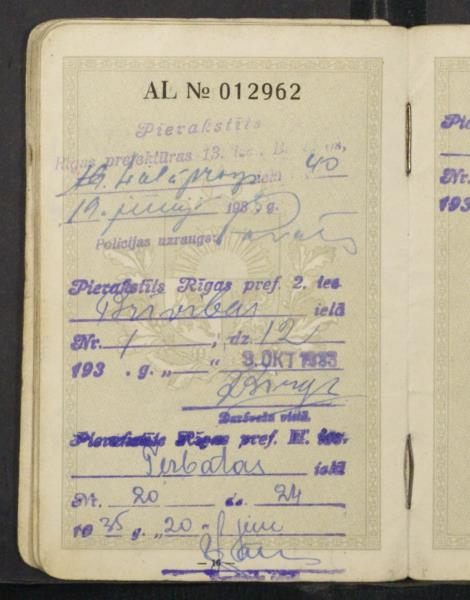 AL № 012962
Pierakstīts
Rīgas prefektūras 13. iec.
ielā 40
19. jūnijā 193 g.
Policijas uzraugs:
Pierakstīts Rīgas pref. 2. iec
Brīvības ielā
Nr. 1, dz. 12
193 . g. „ “ 3. OKT 1933
Darbveža vietā.
Pierakstīts Rīgas pref. iec.
Tērbatas ielā
Nr. 20 dz. 24
1935 g. „20“ jūn
— 10 —
Pie
Nr.
193